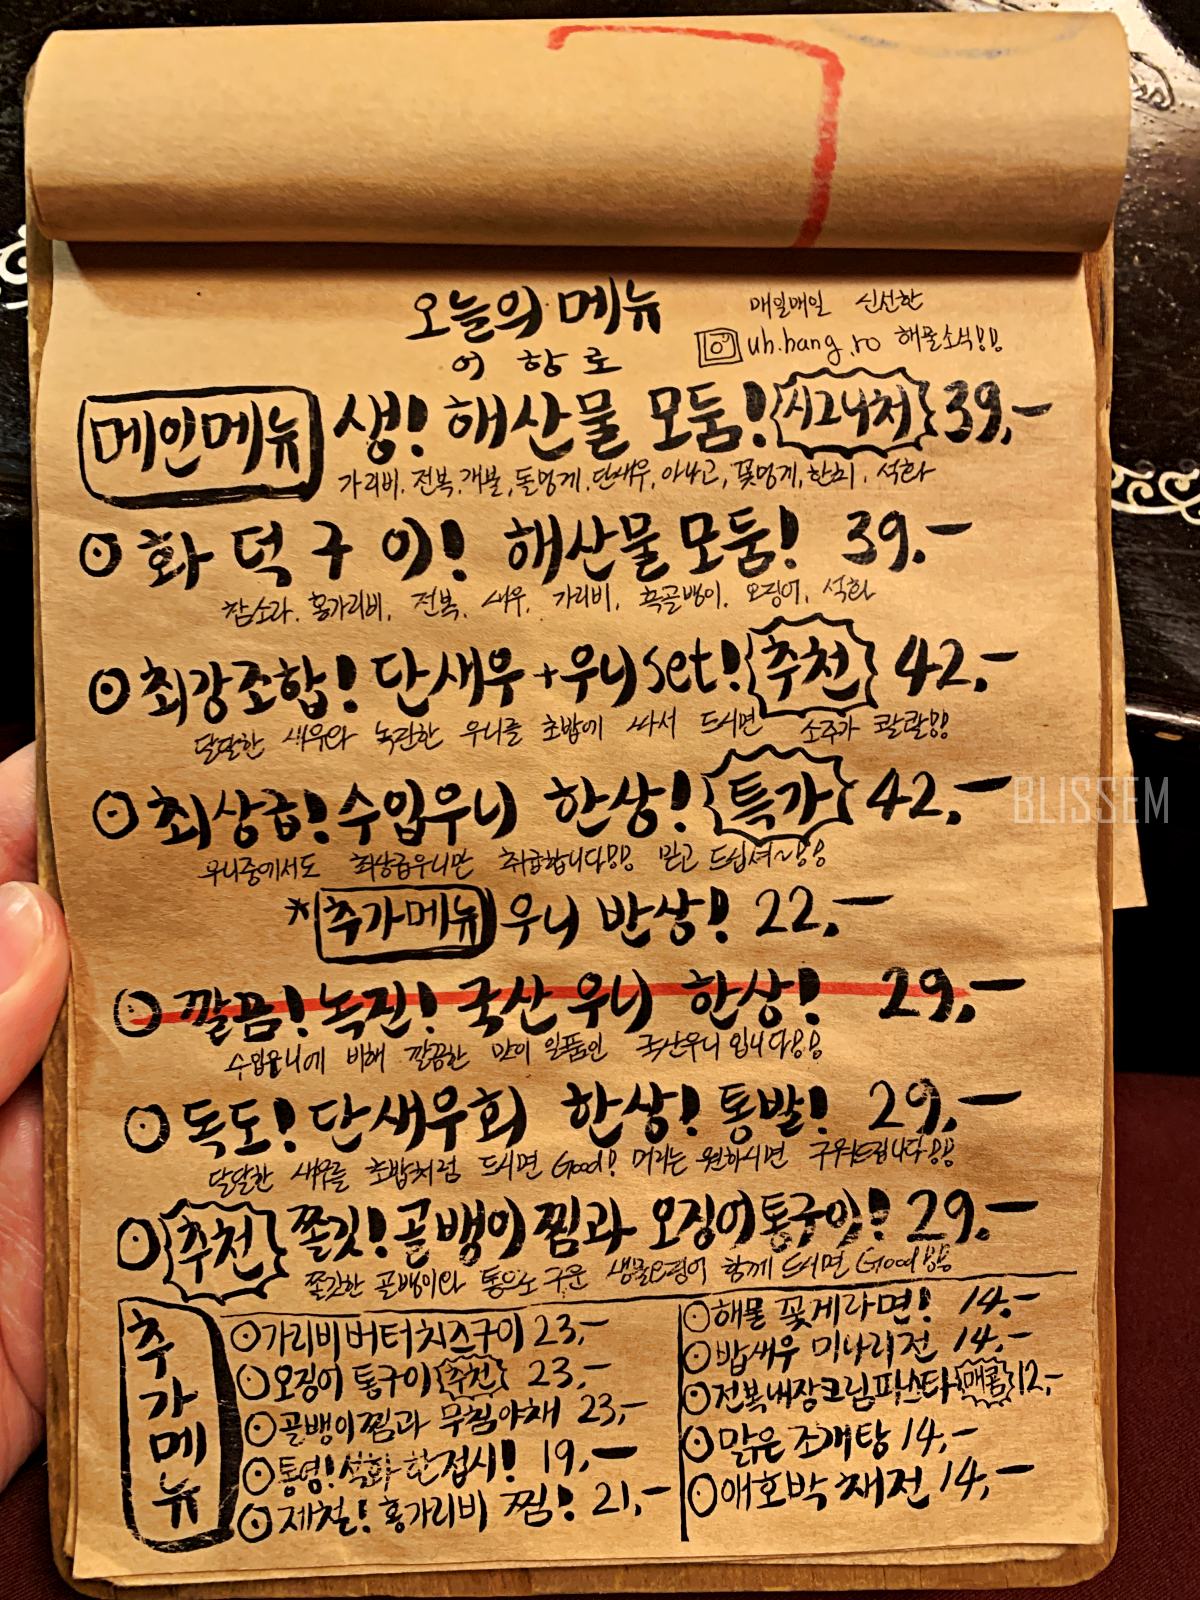 오늘의 메뉴
어 항 로
매일매일 신선한
uh.hang.ro 해물소식!!
메인메뉴 생! 해산물 모둠! 시그니처 39,-
가리비, 전복, 개불, 돌멍게, 단새우, 아나고, 꽃멍게, 한치, 석화
화덕구이! 해산물모둠! 39,-
참소라, 홍가리비, 전복, 새우, 가리비, 흑골뱅이, 오징어, 석화
최강조합! 단새우+우니set! 추천 42,-
달달한 새우와 녹진한 우니를 초밥에 싸서 드시면 소주가 콸콸!!
최상급! 수입우니 한상! 특가 42,-
우니중에서도 최상급우니만 취급합니다!! 믿고 드십셔~!!
*추가메뉴 우니 반상! 22,-
깔끔! 녹진! 국산 우니 한상! 29,-
수입우니에 비해 깔끔한 맛이 일품인 국산우니 입니다!!
독도! 단새우회 한상! 통발! 29,-
달달한 새우를 초밥처럼 드시면 Good! 머리는 원하시면 구워드립니다!!
추천 쫄깃! 골뱅이찜과 오징어통구이! 29,-
쫄깃한 골뱅이와 통으로 구운 생물오징어 함께 드시면 Good!!
추가메뉴
가리비버터치즈구이 23,-
오징어 통구이 추천 23,-
골뱅이찜과 무침야채 23,-
통영! 석화 한접시! 19,-
제철! 홍가리비 찜! 21,-
해물 꽃게라면! 14,-
밥새우 미나리전 14,-
전복내장크림파스타 매콤 12,-
맑은 조개탕 14,-
애호박 채전 14,-
BLISSEM